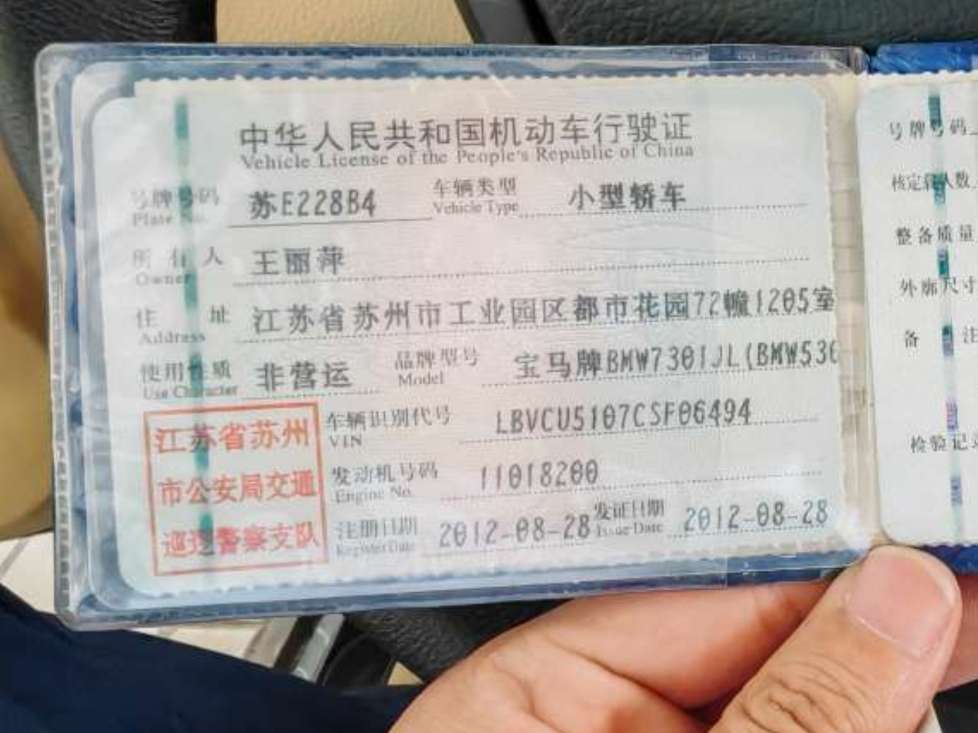 中华人民共和国机动车行驶证
Vehicle License of the People's Republic of China
号牌号码 苏E228B4 车辆类型 小型轿车
Plate No. Vehicle Type
所有人 王丽萍
Owner
住址 江苏省苏州市工业园区都市花园72幢1205室
Address
使用性质 非营运 品牌型号 宝马牌BMW7301JL(BMW536
Use Character Model
江苏省苏州
市公安局交通
巡逻警察支队
车辆识别代号 LBVCU5107CSF06494
VIN
发动机号码 11018200
Engine No.
注册日期 2012-08-28 发证日期 2012-08-28
Register Date Issue Date
号牌号码
核定载人数
整备质量
外廓尺寸
备注
检验记